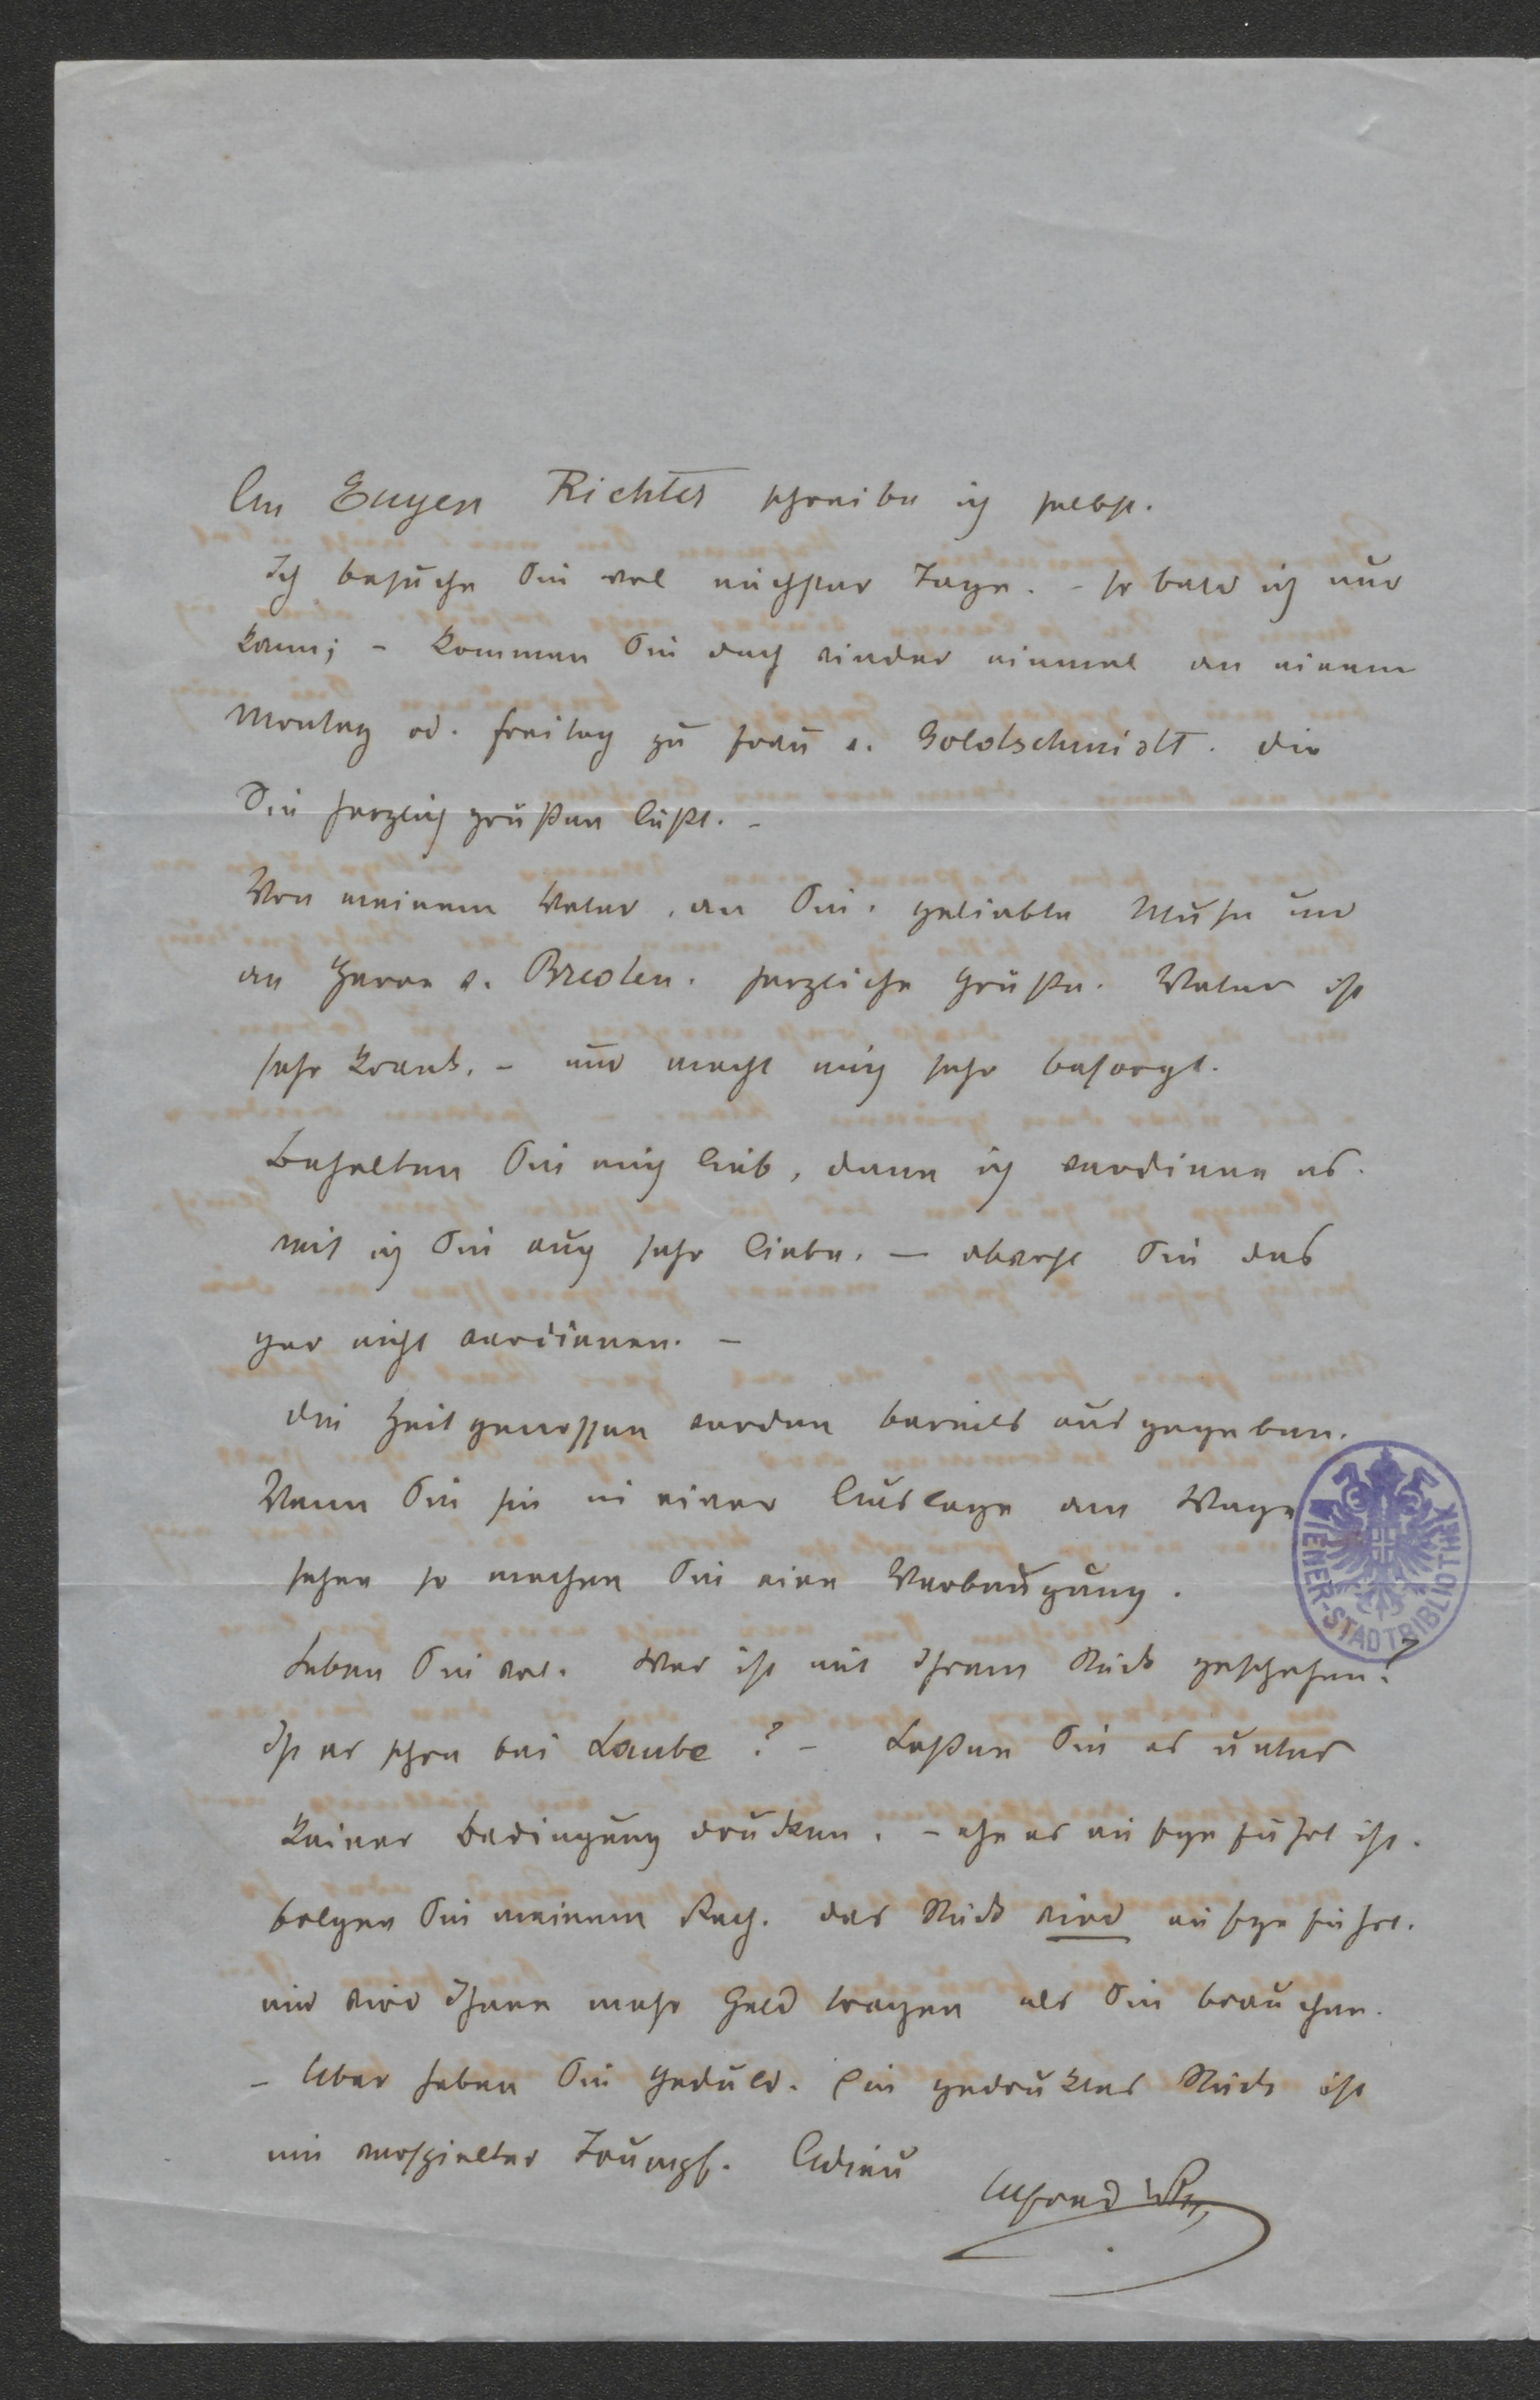 An Eugen Richter schreibe ich selbst.
Ich besuche Sie wol nächster Tage. - so bald ich nur
kann; - kommen Sie doch wieder einmal an einem
Montag od. Freitag zu Frau v. Goldschmidt. die
Sie herzlich grüßen läßt. -
Von meinem Vater, an Sie, geliebte Muse und
an Herrn v. Breden. herzliche Grüße. Vater ist
sehr krank, - und macht mich sehr besorgt.
Behalten Sie mich lieb, denn ich verdiene es.
weil ich Sie auch sehr liebe. — obwohl Sie das
gar nicht verdienen. -
Die Zeitgenossen werden bereits ausgegeben.
Wenn Sie sie in einer Auslage am Wege
sehen so machen Sie eine Verbeugung.
Leben Sie wol. Was ist mit Ihrem Stück geschehen?
Ist es schon bei Laube? - Laßen Sie es unter
keiner Bedingung drucken. - ehe es aufgeführt ist.
Folgen Sie meinem Rath. das Stück wird aufgeführt.
und wird Ihnen mehr Geld tragen als Sie brauchen.
- Aber haben Sie Geduld. Ein gedruktes Stück ist
ein verspielter Trumpf. Adieu
Alfred
WIENER-STADTBIBLIOTHEK